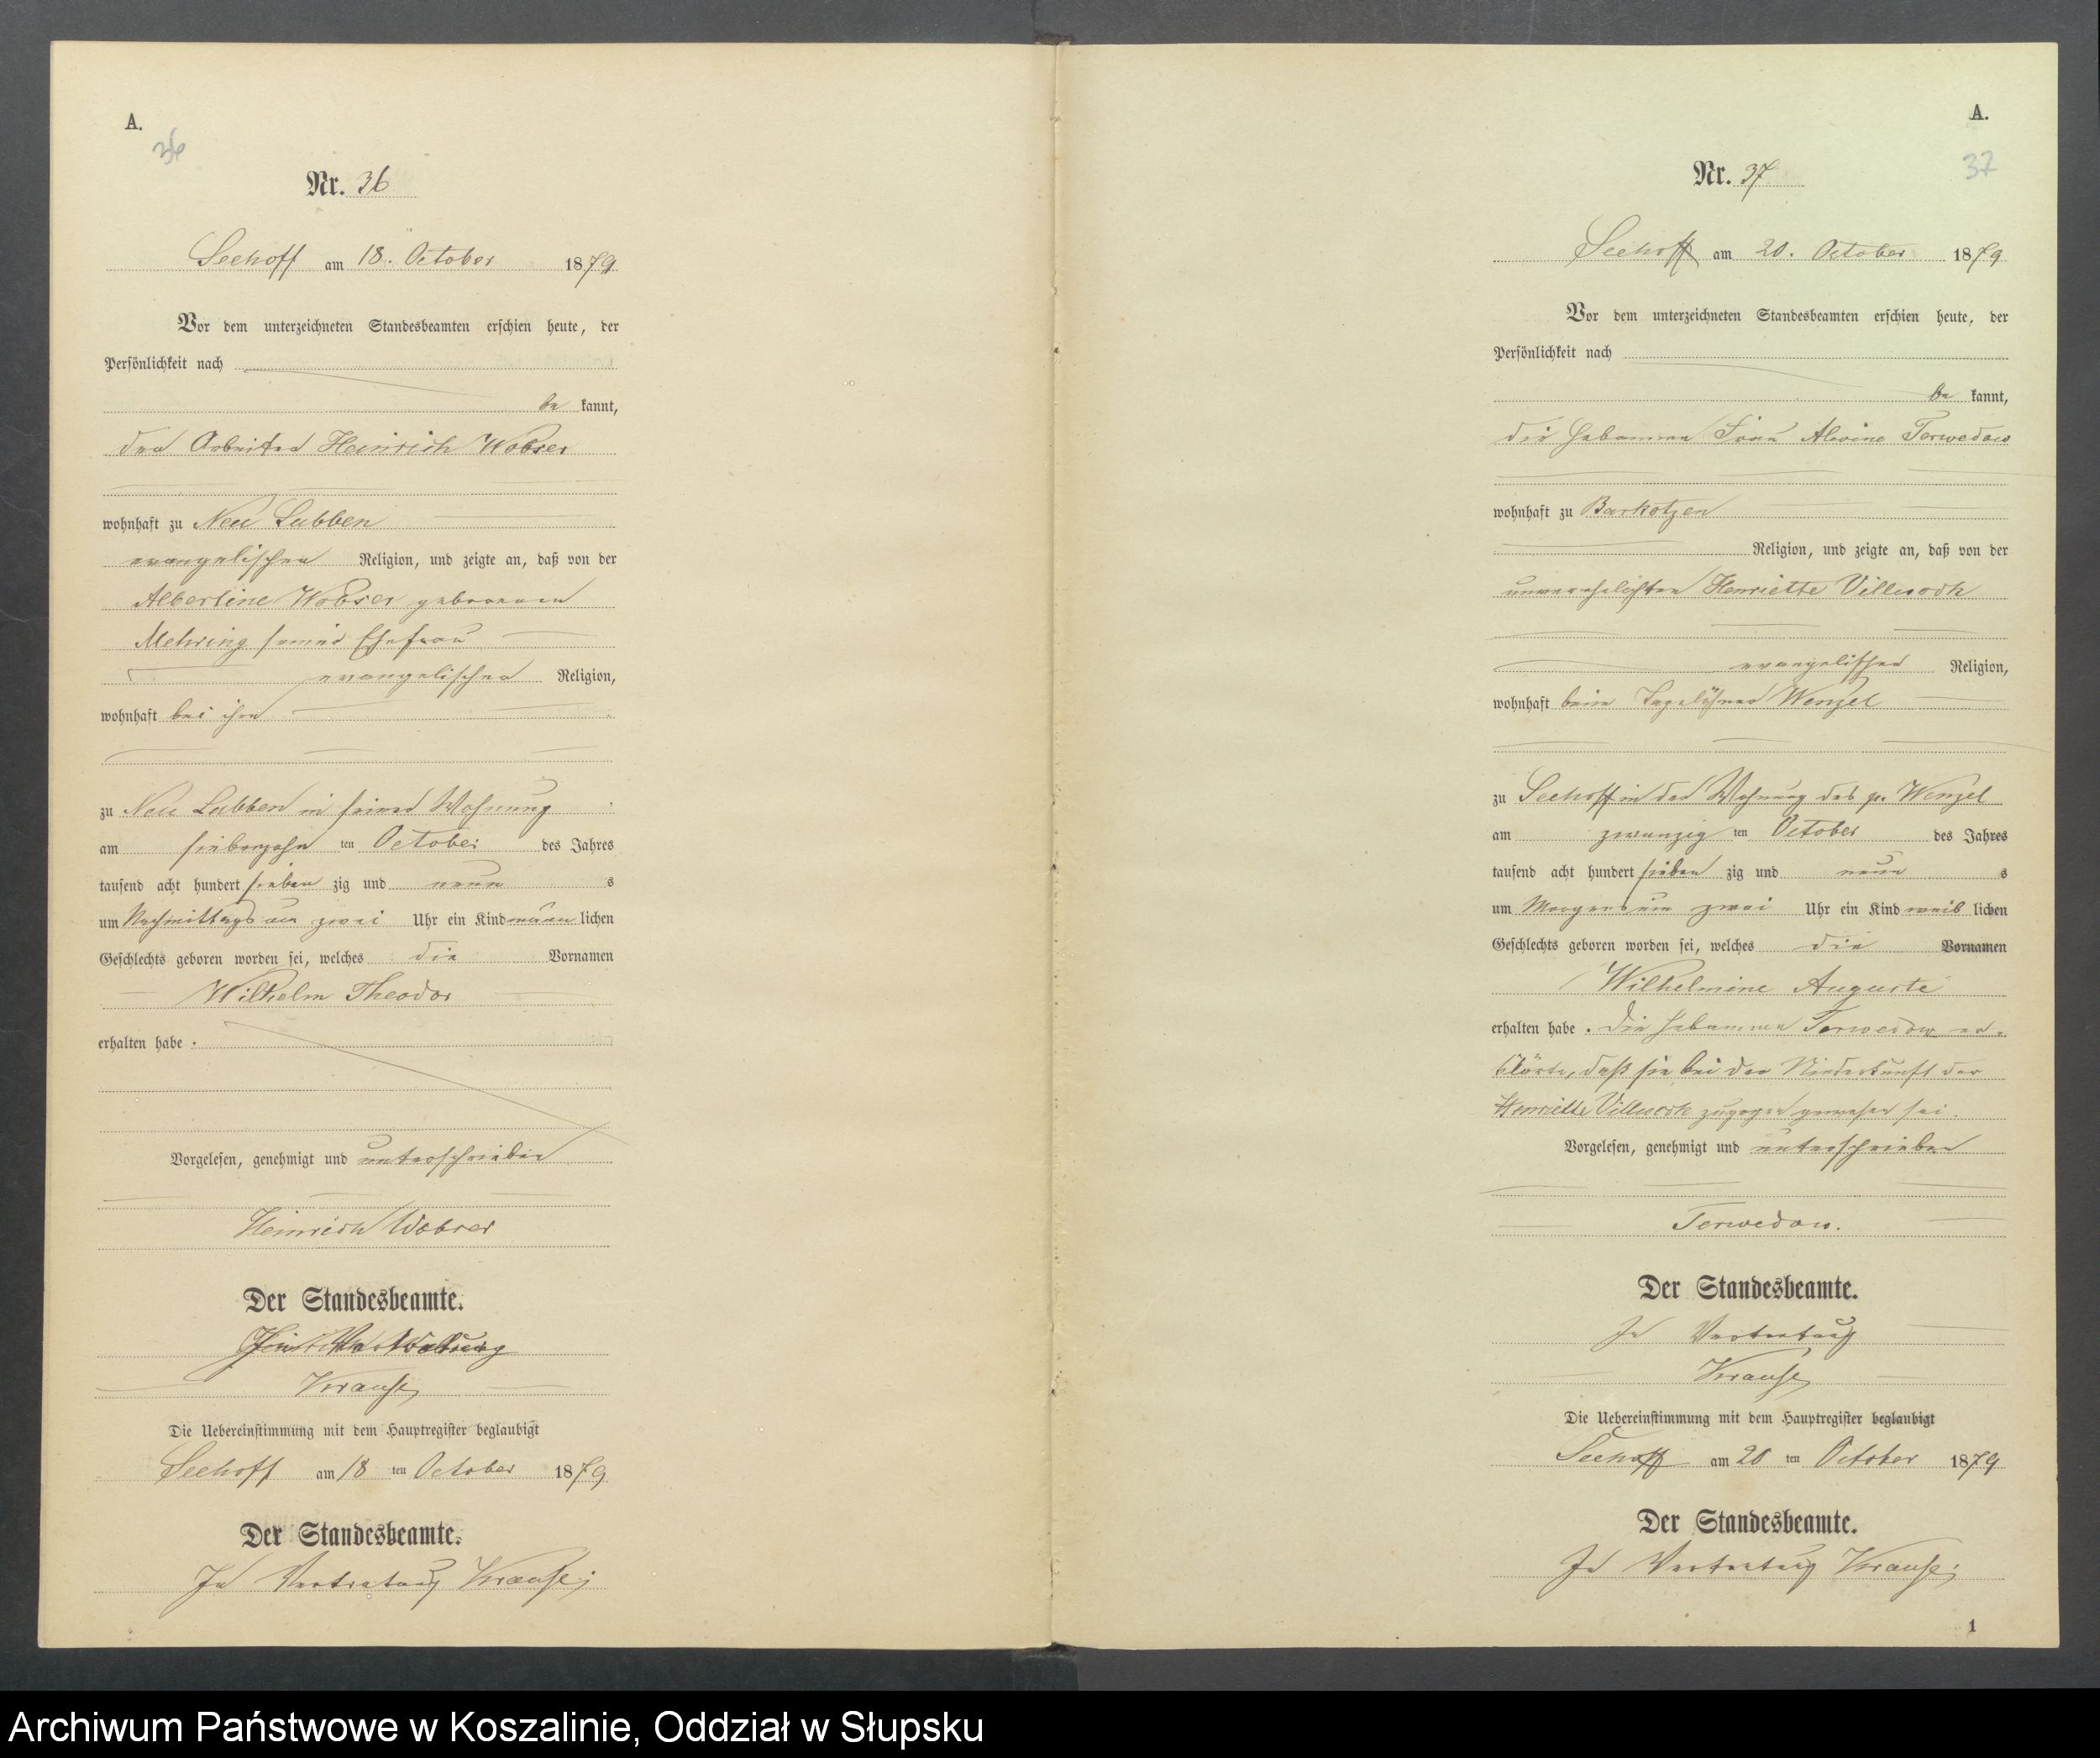 A.
36
Nr. 36
Seehoff am 18. October 1879
Vor dem unterzeichneten Standesbeamten erschien heute, der
Persönlichkeit nach
be kannt,
der Arbeiter Heinrich Wobser
wohnhaft zu Neu Lubben
evangelischer Religion, und zeigte an, daß von der
Albertine Wobser geborenen
Mehring seiner Ehefrau
evangelischer Religion,
wohnhaft bei ihm
zu Neu Lubben in seiner Wohnung
am siebenzehn ten October des Jahres
tausend acht hundert sieben zig und neun s
um Nachmittags um zwei Uhr ein Kind männ lichen
Geschlechts geboren worden sei, welches die Vornamen
Wilhelm Theodor
erhalten habe.
Vorgelesen, genehmigt und unterschrieben
Heinrich Wobser
Der Standesbeamte.
In Vertretung
Krause
Die Uebereinstimmung mit dem Hauptregister beglaubigt
Seehoff am 18 ten October 1879
Der Standesbeamte.
In Vertretung Krause
A.
37
Nr. 37
Seehoff am 20. October 1879
Vor dem unterzeichneten Standesbeamten erschien heute, der
Persönlichkeit nach
be kannt,
die Hebamme Frau Alwine Terwedow
wohnhaft zu Barkotzen
Religion, und zeigte an, daß von der
unverehelichten Henriette Villwock
evangelischer Religion,
wohnhaft beim Tagelöhner Wenzel
zu Seehoff in der Wohnung des p. Wenzel
am zwanzig ten October des Jahres
tausend acht hundert sieben zig und neun s
um Morgens um zwei Uhr ein Kind weib lichen
Geschlechts geboren worden sei, welches die Vornamen
Wilhelmine Auguste
erhalten habe. Die Hebamme Terwedow er-
klärte, daß sie bei der Niederkunft der
Henriette Villwock zugegen gewesen sei.
Vorgelesen, genehmigt und unterschrieben
Terwedow.
Der Standesbeamte.
In Vertretung
Krause
Die Uebereinstimmung mit dem Hauptregister beglaubigt
Seehoff am 20 ten October 1879
Der Standesbeamte.
In Vertretung Krause
1
Archiwum Państwowe w Koszalinie, Oddział w Słupsku